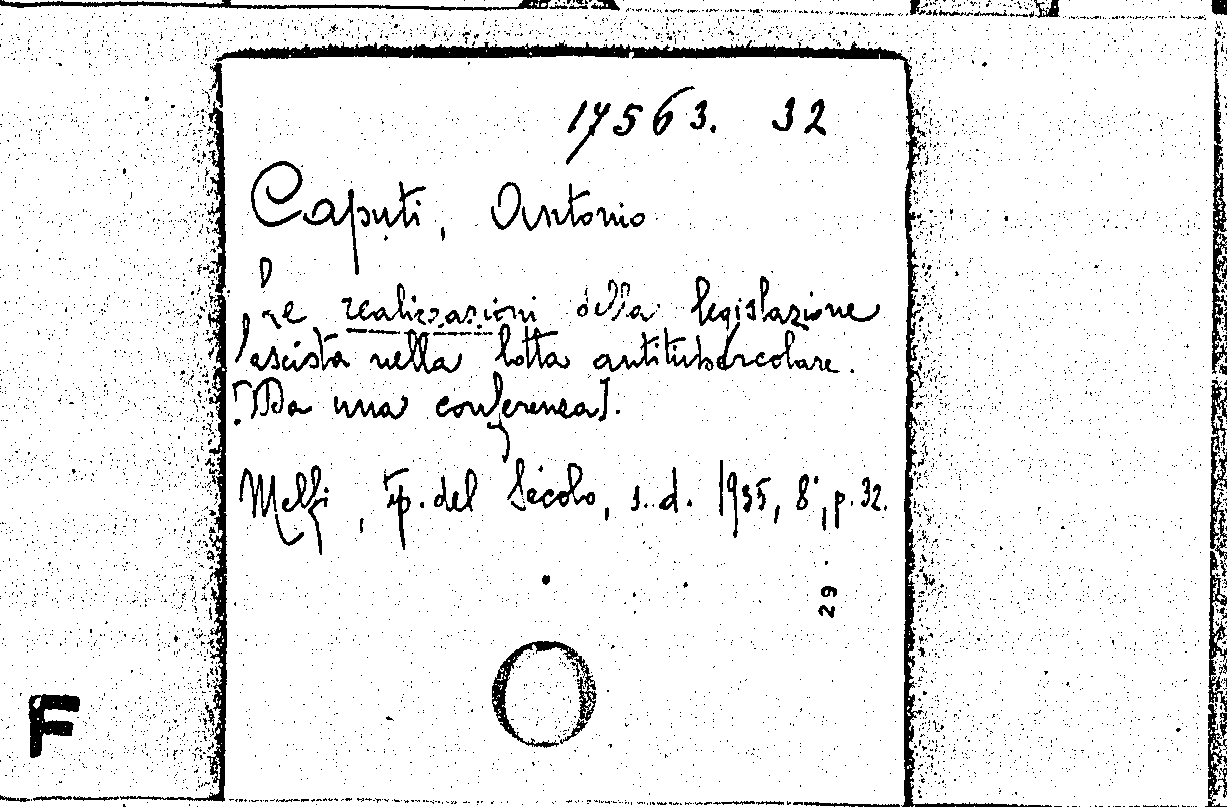 17563. 32
Caputi, Antonio
Le realizzazioni della legislazione
fascista nella lotta antitubercolare.
[Da una conferenza].
Melfi, tip. del Secolo, s. d. 1935, 8°, p. 32.
29
F